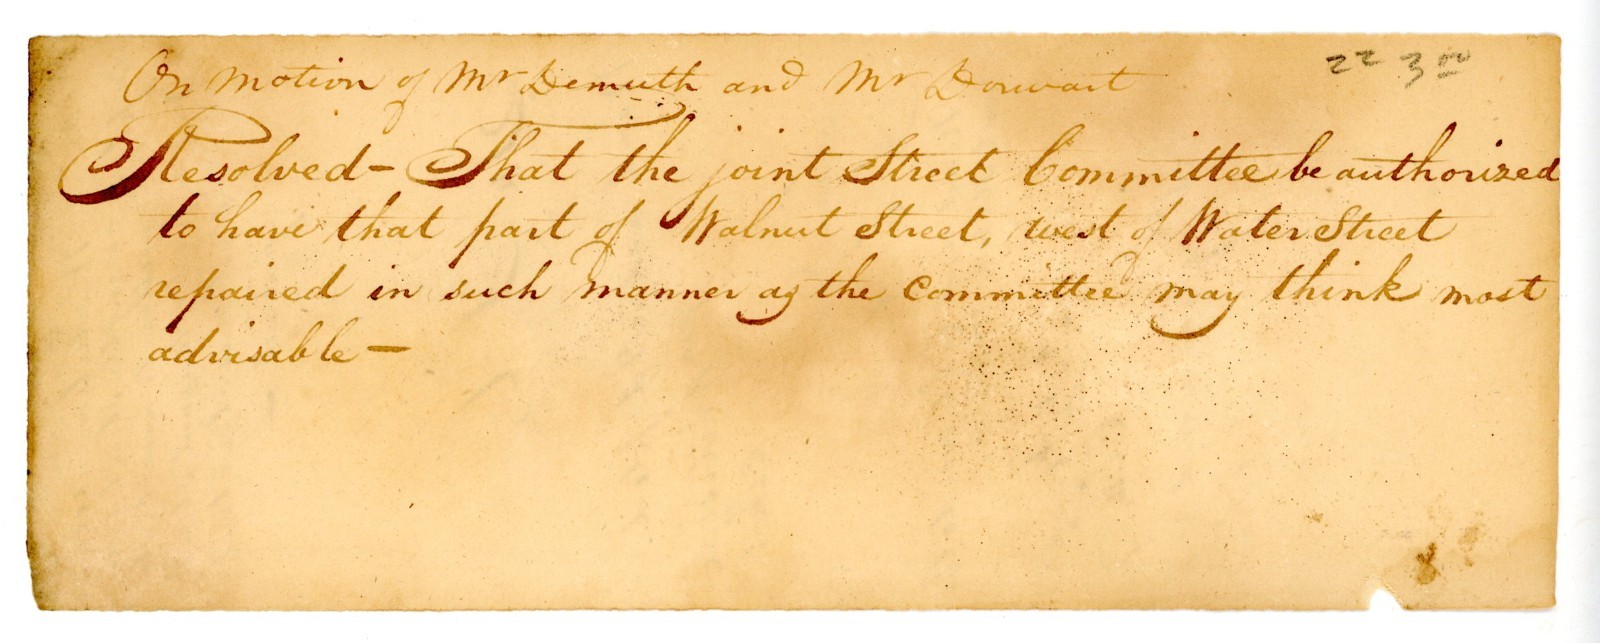 22 3 00
On motion of Mr Demuth and Mr Dorwart
Resolved – That the joint Street Committee be authorized
to have that part of Walnut Street, west of Water Street
repaired in such manner as the committee may think most
advisable –